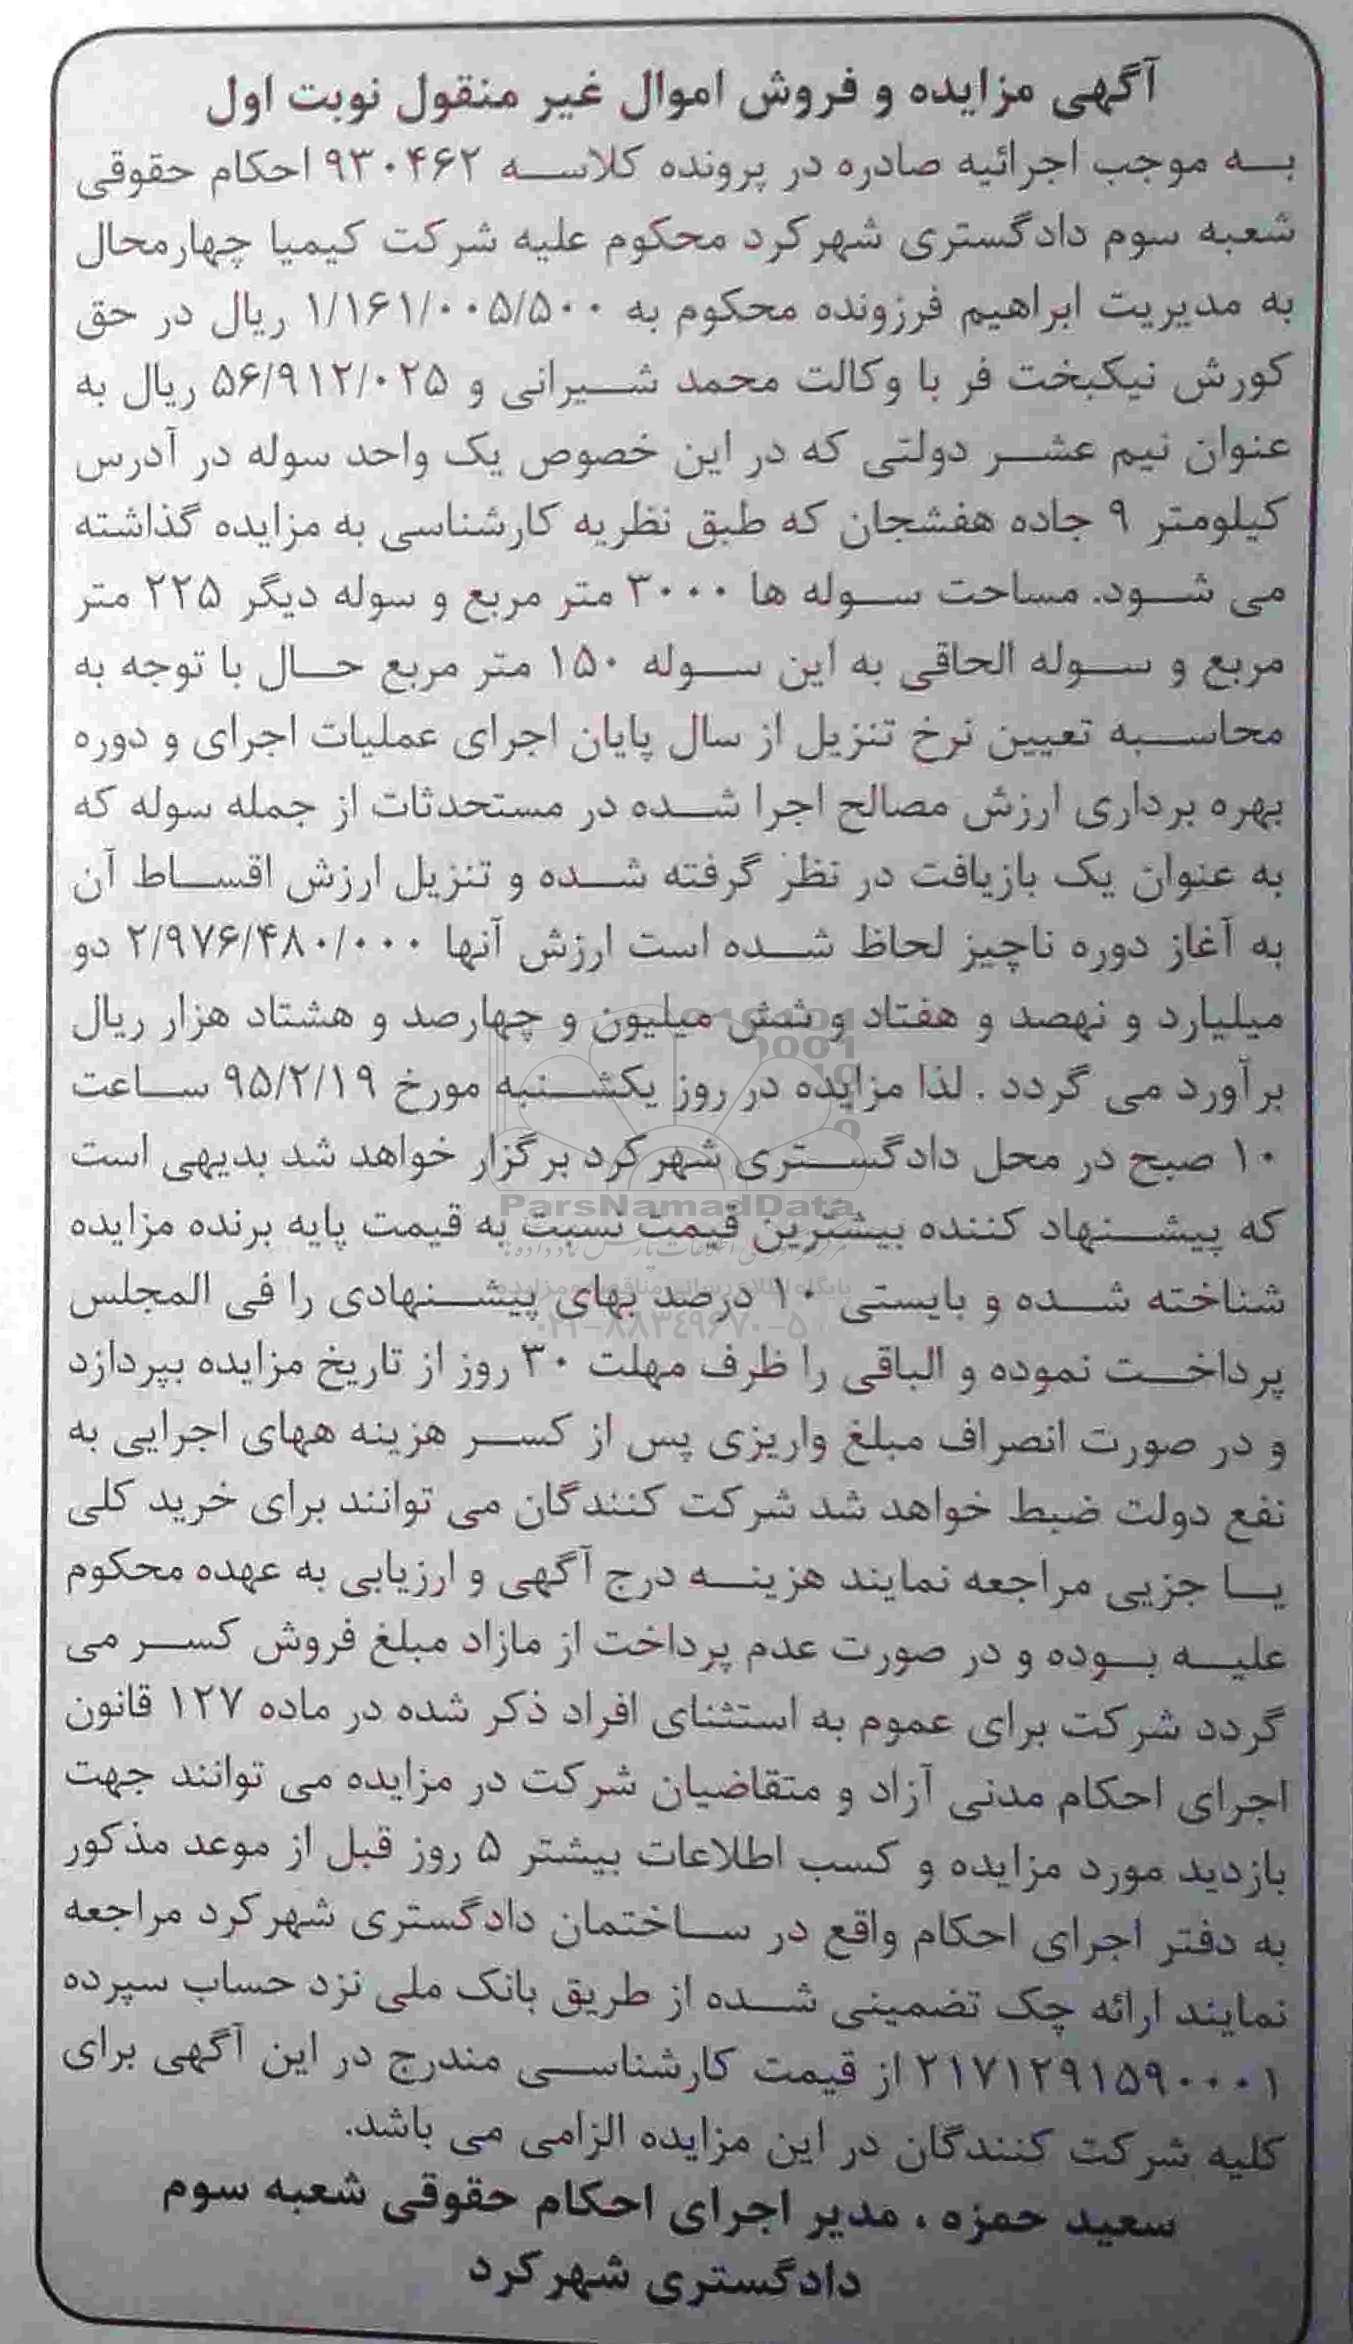 آگهی مزایده و فروش اموال غیر منقول نوبت اول
به موجب اجرائیه صادره در پرونده کلاسه ۹۳۰۴۶۲ احکام حقوقی
شعبه سوم دادگستری شهرکرد محکوم علیه شرکت کیمیا چهارمحال
به مدیریت ابراهیم فرزونده محکوم به ۱/۱۶۱/۰۰۵/۵۰۰ ریال در حق
کورش نیکبخت فر با وکالت محمد شیرانی و ۵۶/۹۱۲/۰۲۵ ریال به
عنوان نیم عشر دولتی که در این خصوص یک واحد سوله در آدرس
کیلومتر ۹ جاده هفشجان که طبق نظریه کارشناسی به مزایده گذاشته
می شود. مساحت سوله ها ۳۰۰۰ متر مربع و سوله دیگر ۲۲۵ متر
مربع و سوله الحاقی به این سوله ۱۵۰ متر مربع حال با توجه به
محاسبه تعیین نرخ تنزیل از سال پایان اجرای عملیات اجرای و دوره
بهره برداری ارزش مصالح اجرا شده در مستحدثات از جمله سوله که
به عنوان یک بازیافت در نظر گرفته شده و تنزیل ارزش اقساط آن
به آغاز دوره ناچیز لحاظ شده است ارزش آنها ۲/۹۷۶/۴۸۰/۰۰۰ دو
میلیارد و نهصد و هفتاد و شش میلیون و چهارصد و هشتاد هزار ریال
برآورد می گردد . لذا مزایده در روز یکشنبه مورخ ۹۵/۲/۱۹ ساعت
۱۰ صبح در محل دادگستری شهرکرد برگزار خواهد شد بدیهی است
ParsNamadData
که پیشنهاد کننده بیشترین قیمت نسبت به قیمت پایه برنده مزایده
شناخته شده و بایستی ۱۰ درصد بهای پیشنهادی را فی المجلس
۰۲۱-۸۸۳۴۹۶۷۰-۵
پرداخت نموده و الباقی را ظرف مهلت ۳۰ روز از تاریخ مزایده بپردازد
و در صورت انصراف مبلغ واریزی پس از کسر هزینه ههای اجرایی به
نفع دولت ضبط خواهد شد شرکت کنندگان می توانند برای خرید کلی
یا جزیی مراجعه نمایند هزینه درج آگهی و ارزیابی به عهده محکوم
علیه بوده و در صورت عدم پرداخت از مازاد مبلغ فروش کسر می
گردد شرکت برای عموم به استثنای افراد ذکر شده در ماده ۱۲۷ قانون
اجرای احکام مدنی آزاد و متقاضیان شرکت در مزایده می توانند جهت
بازدید مورد مزایده و کسب اطلاعات بیشتر ۵ روز قبل از موعد مذکور
به دفتر اجرای احکام واقع در ساختمان دادگستری شهرکرد مراجعه
نمایند ارائه چک تضمینی شده از طریق بانک ملی نزد حساب سپرده
۲۱۷۱۲۹۱۵۹۰۰۰۱ از قیمت کارشناسی مندرج در این آگهی برای
کلیه شرکت کنندگان در این مزایده الزامی می باشد.
سعید حمزه ، مدیر اجرای احکام حقوقی شعبه سوم
دادگستری شهرکرد